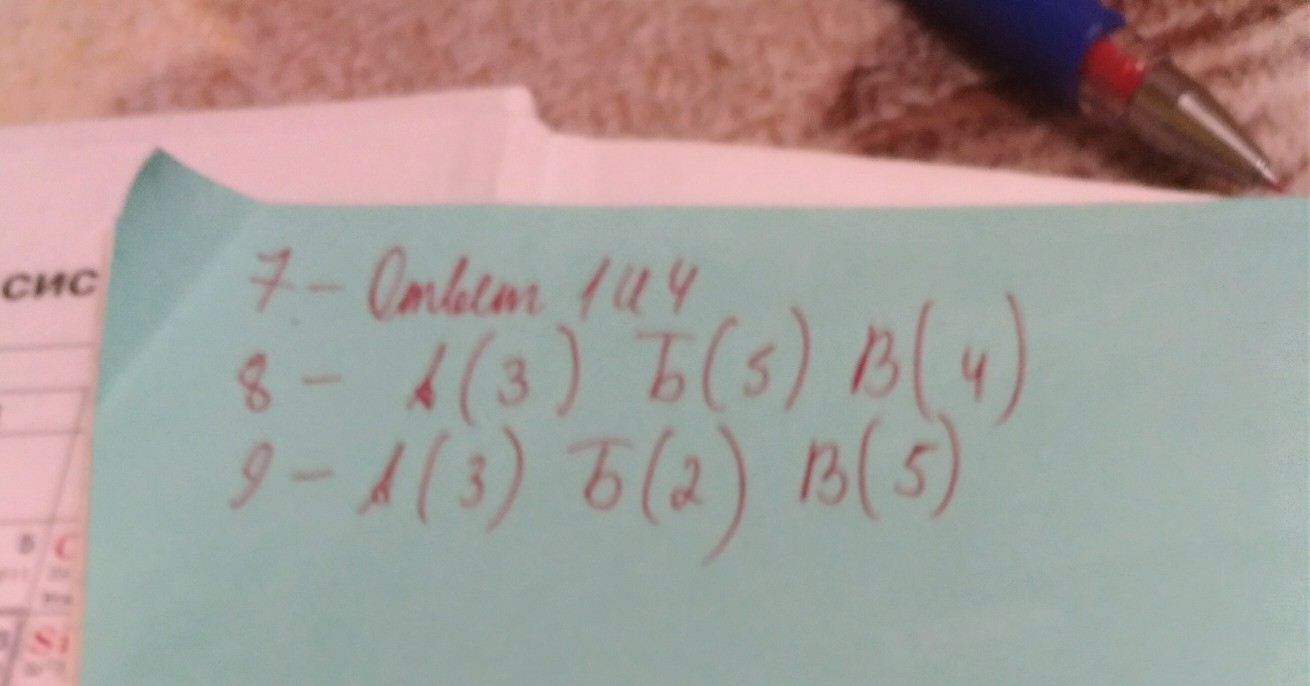 7 - Ответ 1 и 4
8 - А(3) Б(5) В(4)
9 - А(3) Б(2) В(5)
сис
C
Si